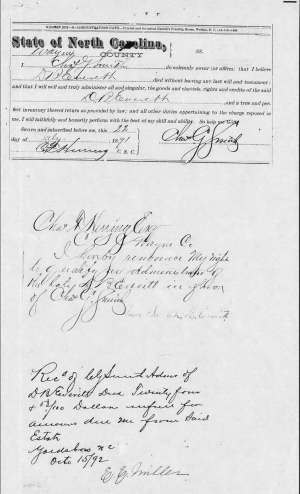 State of North Carolina,
Wayne COUNTY
SS.
do solemnly swear (or affirm) that I believe
D B Everett died without having any last will and testament;
and that I will well and truly administer all and singular, the goods and chattels, rights and credits of the said
D B Everett and a true and per-
fect inventory thereof return as provided by law; and all other duties appertaining to the charge reposed in
me, I will faithfully and honestly perform with the best of my skill and ability. So help me God
Sworn and subscribed before me, this 22
day of 1891
Herring C S C
Chas G Smith
Chas Herring Esq
C S C Wayne Co
I hereby renounce my right
to qualify as administrator of
the late D B Everett in favor
of Chas G Smith
Rec'd of C G Smith Admr of
D B Everett Decd Twenty four
+ 52/100 Dollars in full for
amount due me from said
Estate
Goldsboro, NC
Octo 15/92
E. G. Miller